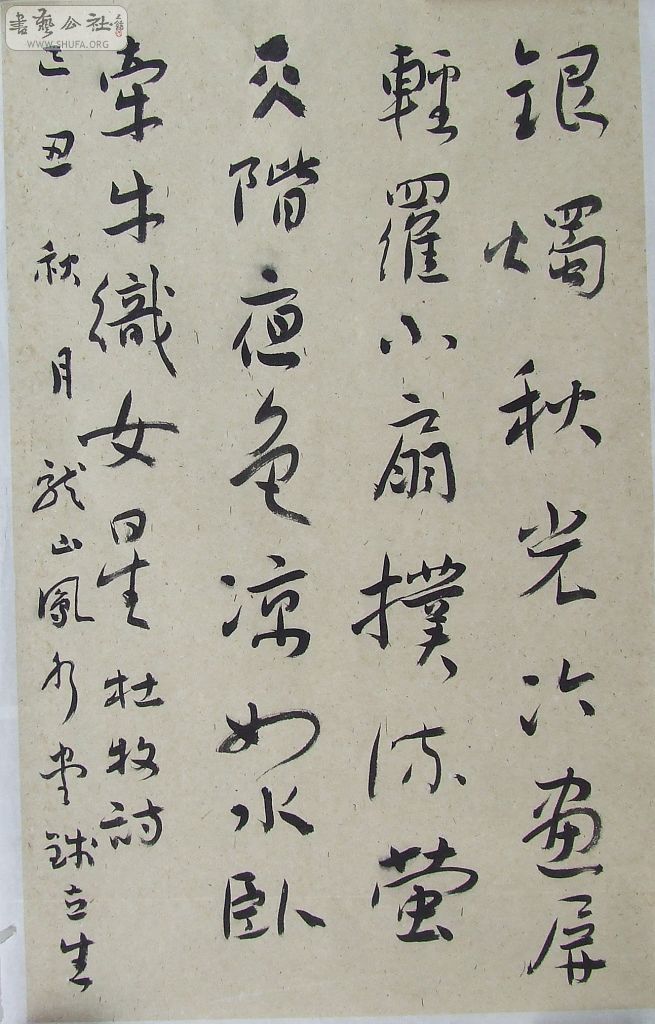 書藝公社
WWW.SHUFA.ORG
銀燭秋光冷畫屏
輕羅小扇撲流螢
天階夜色凉如水臥
牽牛織女星 杜牧詩
己丑秋月龍山鳳立生